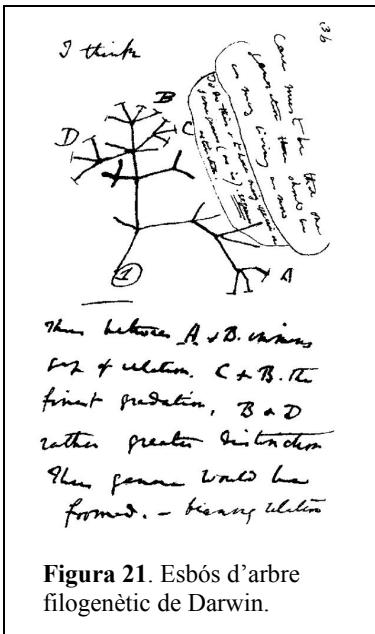 36
I think
Case must be that one
generation then should be
as many living as now
To do this & to have many species in
same genus (as is). requires
extinction.
B
C
D
A
1
Thus between A & B. immense
gap of relation. C & B. The
finest gradation, B & D
rather greater distinction
Thus genera would be
formed. — bearing relation
Figura 21. Esbós d’arbre
filogenètic de Darwin.